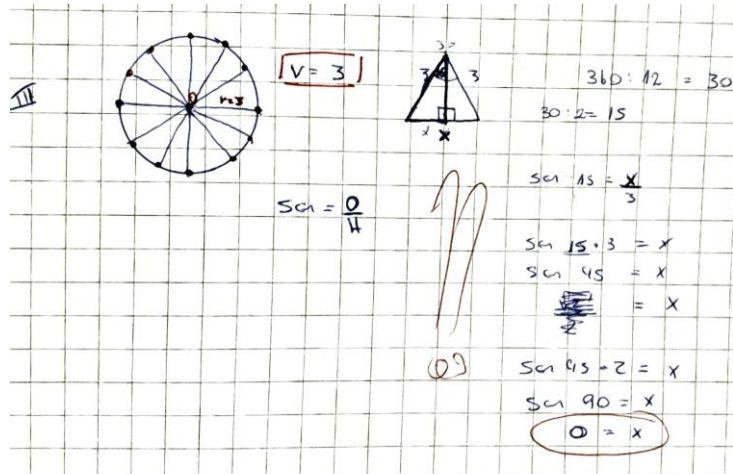 III
r=3
V = 3
3 3
x
360 : 12 = 30
30 : 2 = 15
Sen = O/H
Sen 15 = x/3
Sen 15 · 3 = x
Sen 45 = x
= x
Sen 45 · 2 = x
Sen 90 = x
0 = x